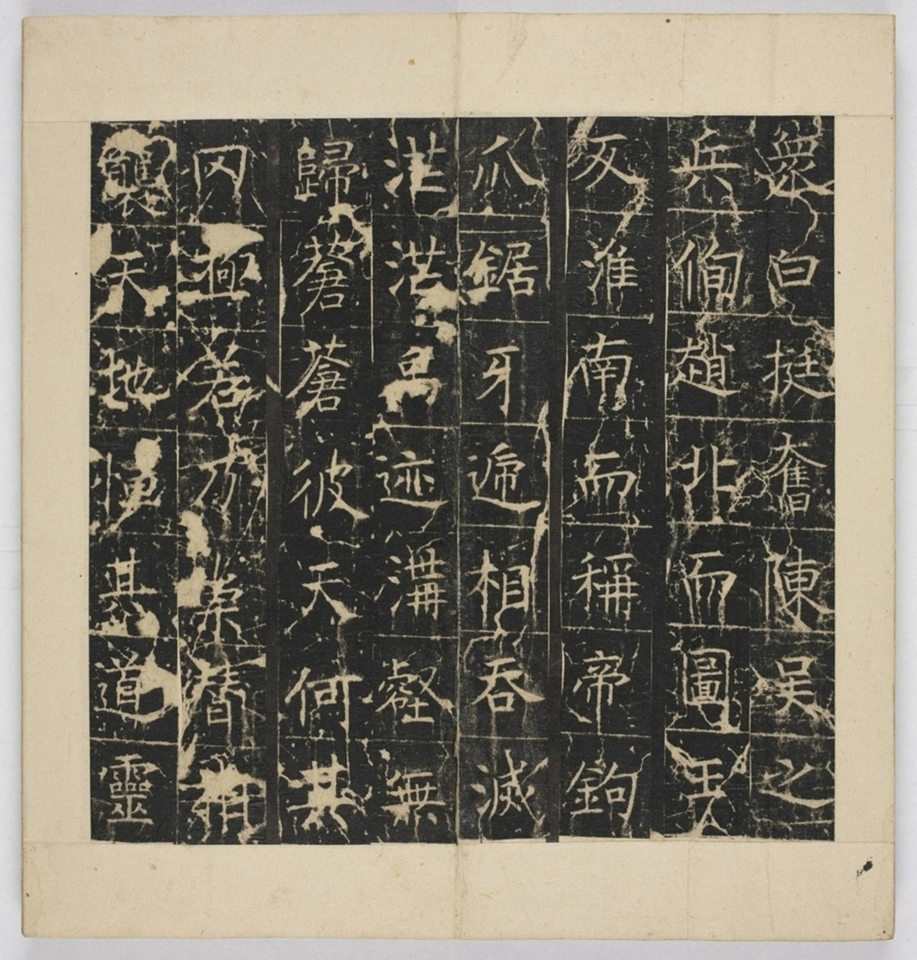 衆白挺奮陳吳之
兵侚趙北而圖王
反淮南而稱帝鉤
爪鋸牙遞相吞滅
茫茫禹迹溝壑無
歸蒼蒼彼天何其
罔極若
襲天地其道靈